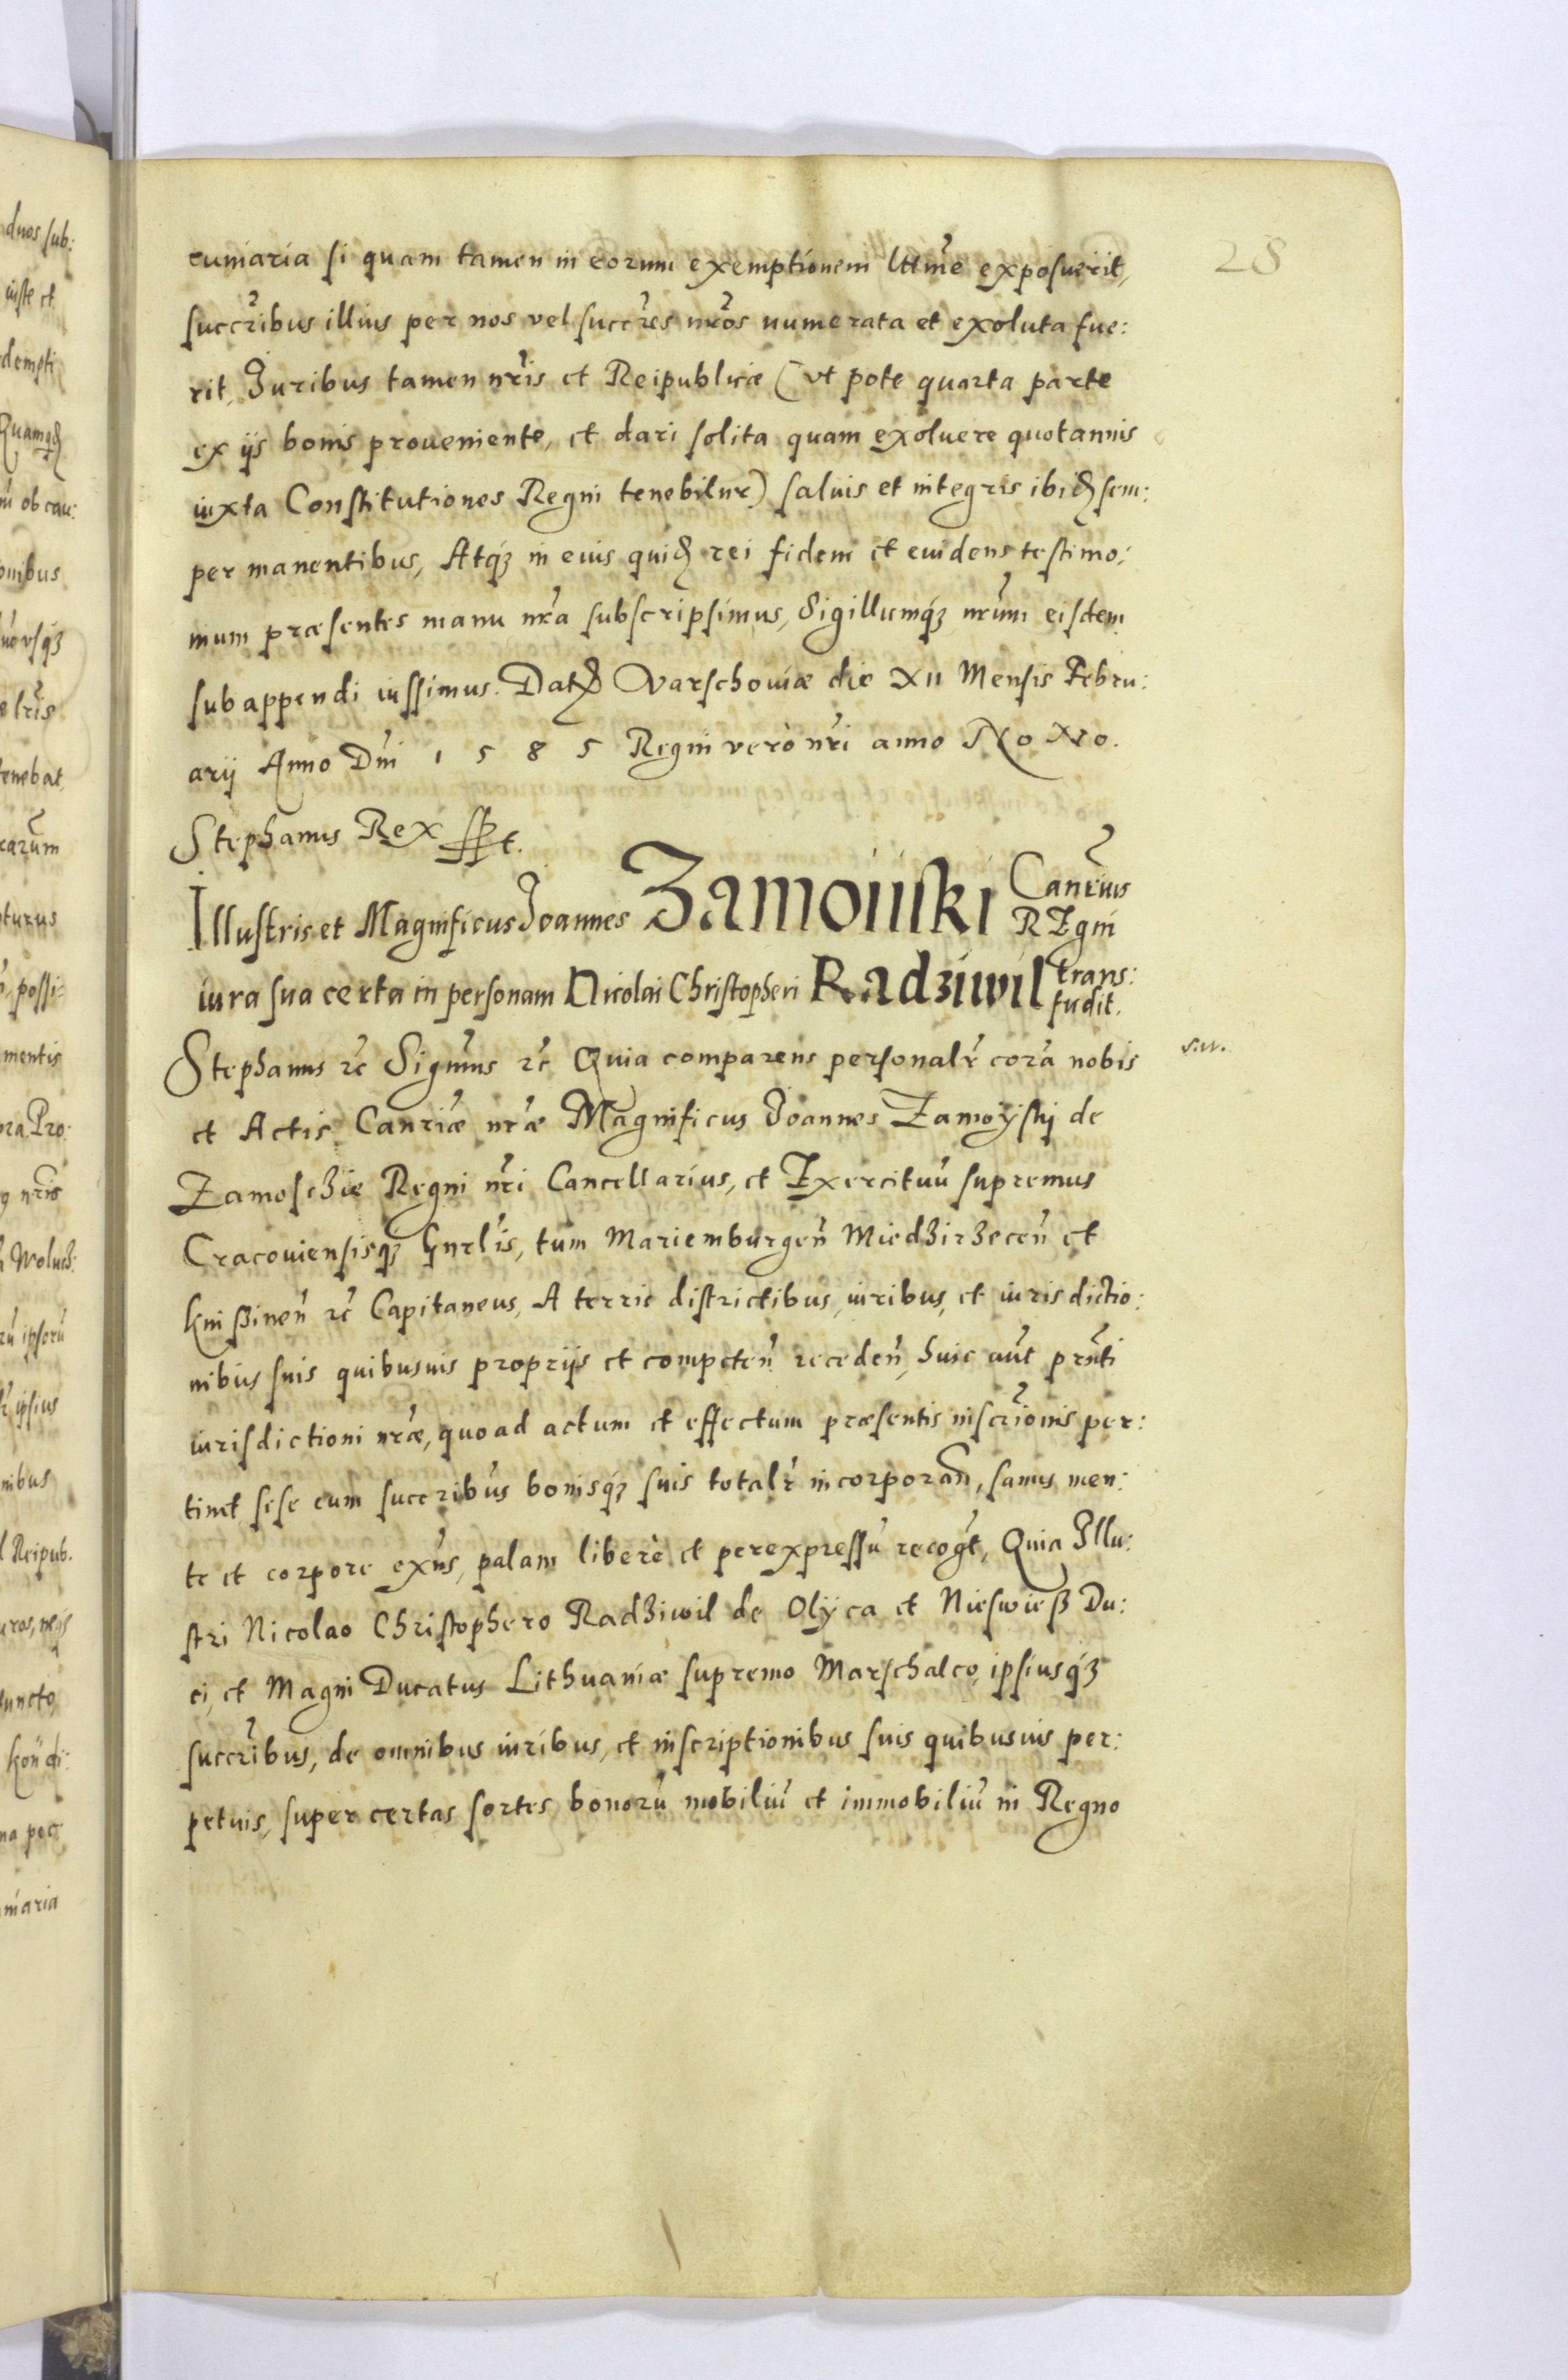 28
cuniaria si quam tamen in eorum exemptionem lttme exposuerit,
succribus illius per nos vel succres nros numerata et exoluta fue:
rit, Juribus tamen nris et Reipublicæ (vt pote quarta parte
ex ijs bonis proueniente, et dari solita quam exoluere quotannis
iuxta Constitutiones Regni tenebitur) saluis et integris ibid sem:
per manentibus, Atqꝫ in eius quid rei fidem et euidens testimo:
nium præsentes manu nra subscripsimus, Sigillumqꝫ nrum eisdem
subappendi iussimus. Dat Varschouiæ die XII Mensis Febru:
arij Anno Dni 1585 Regni verò nri anno Nono.
Stephanus Rex sst.
Illustris et Magnificus Joannes Zamoiiski Canrius REgni
iura sua certa in personam Nicolai Christopheri Radziwil trans: fudit.
Stephanus ꝛc Signimus ꝛc Quia comparens personalr corã nobis
et Actis Canriæ nræ Magnificus Joannes Zamoyskj de
Zamosczie Regni nri Cancellarius, et Exercituũ supremus
Cracouiensisqꝫ Gnrlis, tum Mariemburgen Miedzirzecen et
Knißinen ꝛc Capitaneus, A terris districtibus, iuribus, et iurisdictio:
nibus suis quibusuis proprijs et competen receden, huic aut prnti
iurisdictioni nræ, quoad actum et effectum præsentis inscrionis per:
tinet sese cum succribus bonisqꝫ suis totalr incorporan, sanus men:
te et corpore exns, palam liberè et perexpressũ recogt, Quia Illu:
stri Nicolao Christophero Radziwil de Olyca et Nieswieß Du:
ci, et Magni Ducatus Lithuaniæ supremo Marschalco, ipsiusqꝫ
succribus, de omnibus iuribus, et inscriptionibus suis quibusuis per:
petuis, super certas sortes bonorũ mobiliũ et immobiliũ in Regno